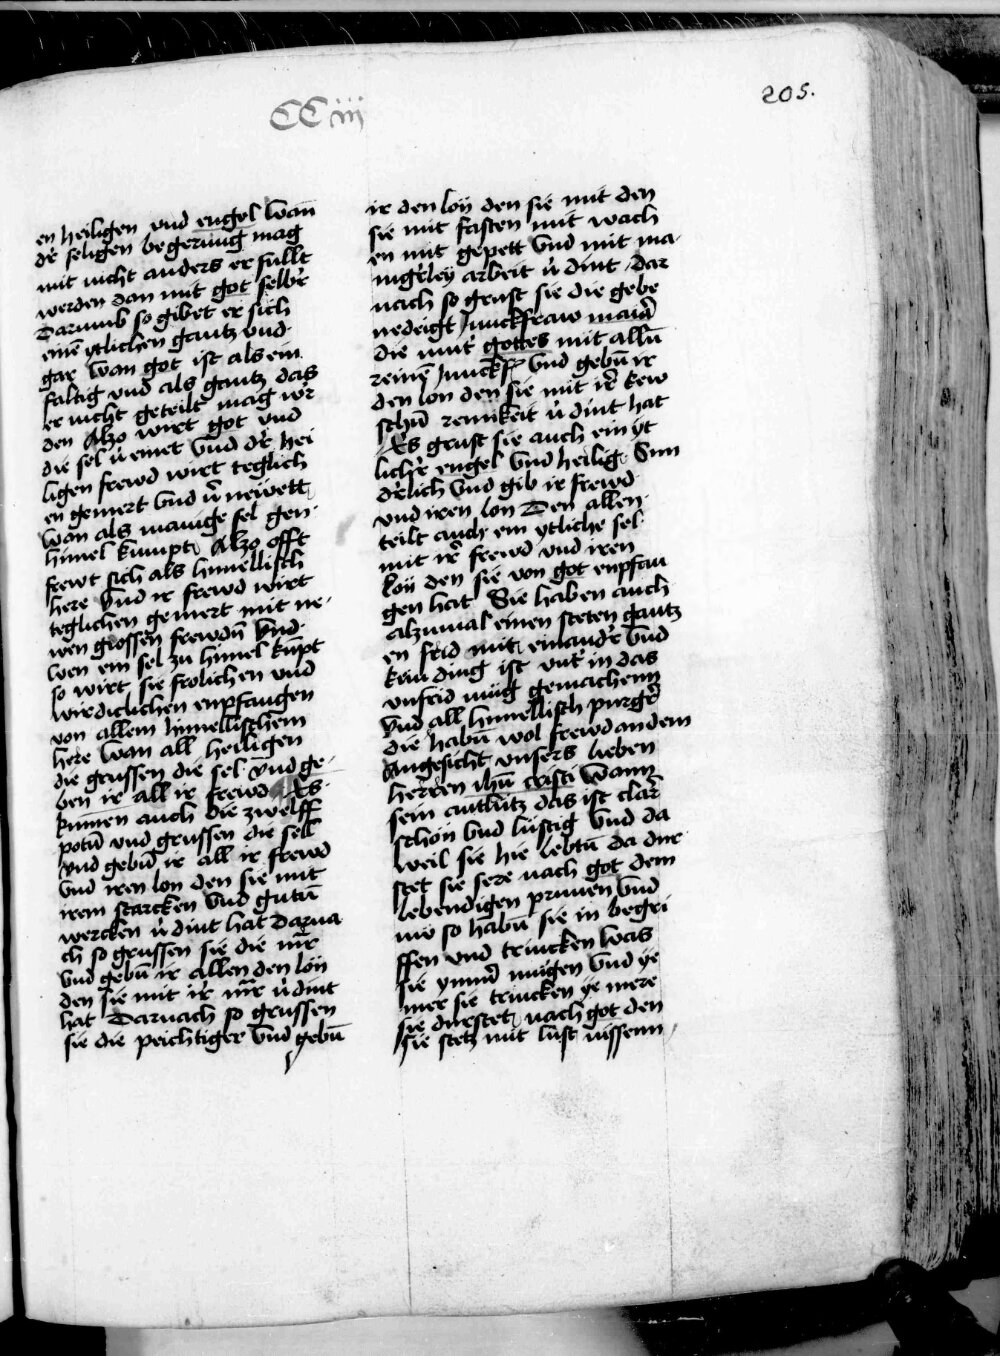 CCiij
205.
en heiligen vnd engel wan
dˀ seligen begerung mag
mit nicht anders er fullt
werden dan mit got selbˀr
Darumb so gibet er sich
einē ytlichen gantz vnd
gar wan got ist als ein
faltig vnd als gantz das
er nicht geteilt mag wˀr
den Alzo wirt got vnd
die sel v̉ einet vnd dˀr hei
ligen frewd wirt teglich
en gemert vnd v̉ newett
wan als manige sel gen
himel kumpt Alzo offt
frewt sich als himellisch
here vnd ir frewd wirt
teglichen gemert mit ne-
wen grossen frewdn̄ vnd
wen ein sel zu himel kūpt
so wirt sie frolichen vnd
wirdiclichen enpfangen
von allem himellischem
here wan all heiligen
die grussen die sel vnd ge-
ben ir all ir frewd Es
kumen auch die zwelff
potn̄ vnd grussen die sell
vnd gebn̄ ir all ir frewd
vnd iren lon den sie mit
irem starcken vnd gutn̄
wercken v̉ dint hat Darna
ch so grussen sie die mr̄
vnd gebn̄ ir allen den lon
den sie mit irˀ mr̄ v̉ dint
hat Darnach so grussen
sie die peichtiger vnd gebn̄
ir den lon den sie mit den
sie mit fasten mit wach
en mit gepett vnd mit ma-
nigˀrley arbeit v̉ dint dar
nach so grust sie die gebe
nedeigt junckfraw maria
die mutˀ gottes mit alln̄
reinē junckf vnd gebn̄ ir
den lon den sie mit irˀ kew
schn̄ reinikeit v̉ dint hat
Es grust sie auch ein yt
lichˀr engel vnd heilig Sun
dˀrlich vnd gib ir frewd
vnd iren lon Den allen
teilt auch ein ytliche sel
mit irˀ frewd vnd iren
lon den sie von got enpfan
gen hat Sie haben auch
alzumal einen steten gantz
en frid mit einandˀr vnd
kein ding ist vntˀ in das
vnfrid mug gemachenn
vnd all himellisch purgˀr
die habn̄ wol frewd an dem
Angesicht vnsers lieben
herren ihū cristi wann
sein antlutz das ist clar
schon vnd lustig vnd da
weil sie hie lebtn̄ da dur
stet sie sere nach got dem
lebendigen prunen vnd
nw so habn̄ sie in begri
ffen vnd trincken was
sie ymmˀ mugen vnd ye
mer sie trincken ye mere
sie durstet nach got den
sie stetz mit lust nissenn